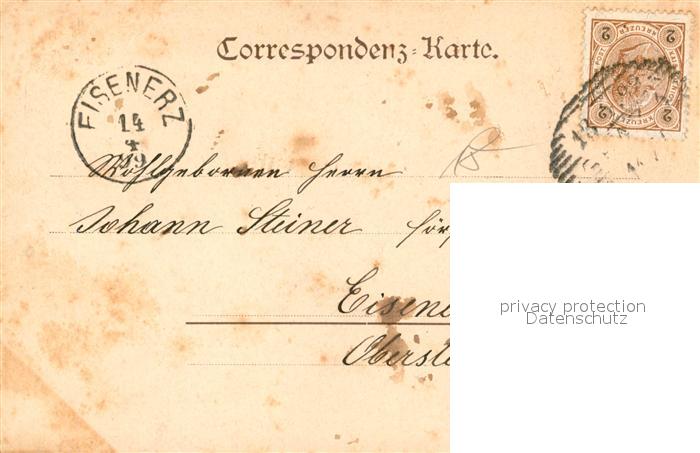 Correspondenz-Karte.
EISENERZ
14
4
99
2 KREUZER 2
Wohlgebornen Herrn
Johann Steiner För
Eisene
Oberste
privacy protection
Datenschutz